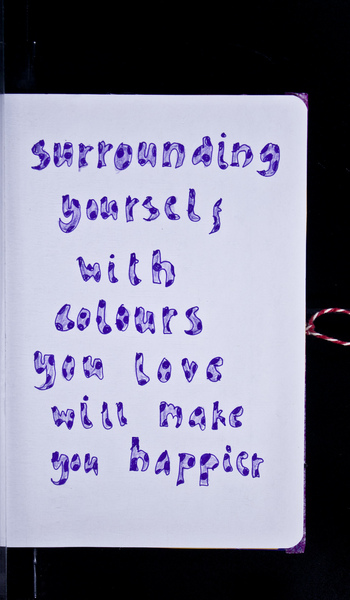 surrounding
yourself
with
colours
you love
will make
you happier